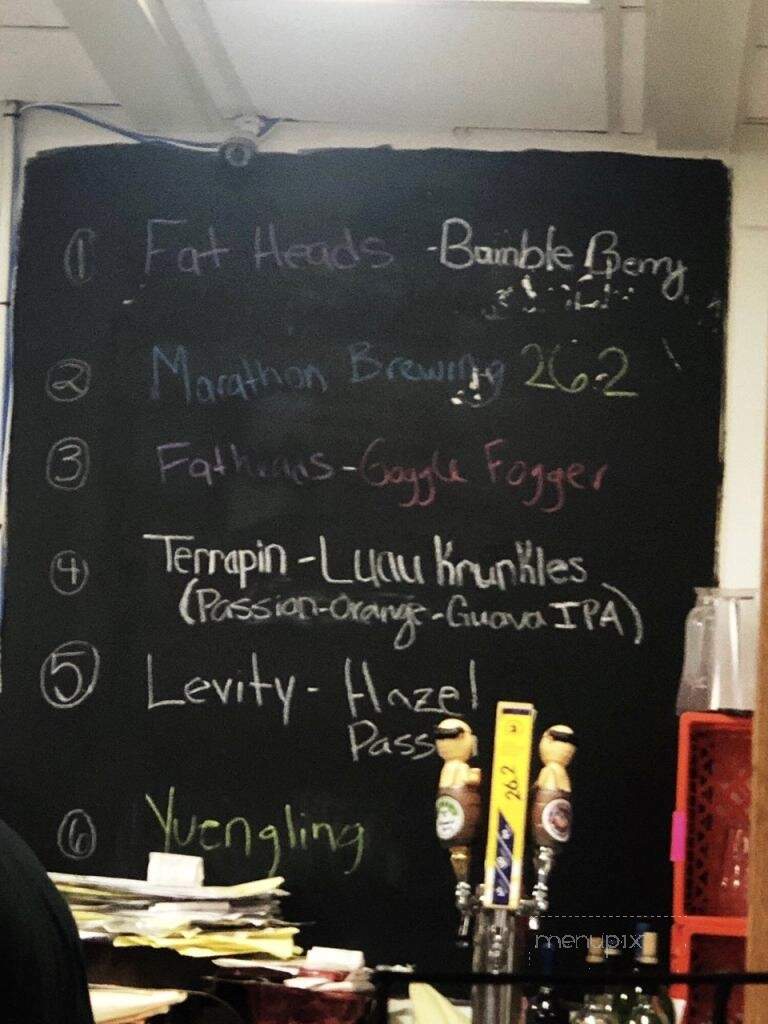 ① Fat Heads - Bumble Berry
② Marathon Brewing 26.2
③ Fatheads - Goggle Fogger
④ Terrapin - Luau Krunkles
(Passion-Orange-Guava IPA)
⑤ Levity - Hazel
Pass
⑥ Yuengling
26.2
menupix